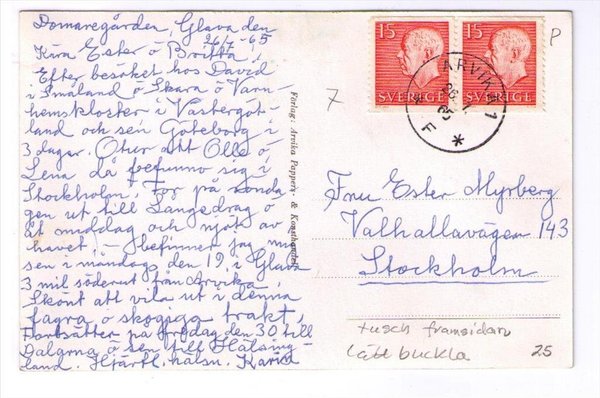 Domaregården, Glava den
26/7 - 65
Kära Ester o Britta!
Efter besöket hos David
i Småland o Skara o Varn-
hemskloster i Västergöt-
land och sen Göteborg i
3 dagar. Otur att Olle o
Lena då befunno sig i
Stockholm, for på sönda-
gen ut till Långedrag o
åt middag och njöt av
havet. - befinner jag mig
sen i måndag, den 19, i Glava
3 mil söderut från Arvika
Skönt att vila ut i denna
fagra o skogiga trakt,
Fortsätter på fredag den 30 till
Dalarna o sen till Hälsing-
land. Hjärtl. hälsn. Karin
7
Förlag: Arvika Pappers- & Konsthandel
15
SVERIGE
15
SVERIGE
ARVIKA 1
65
P
Fru Ester Myrberg
Valhallavägen 143
Stockholm
tusch framsidan
lätt buckla
25